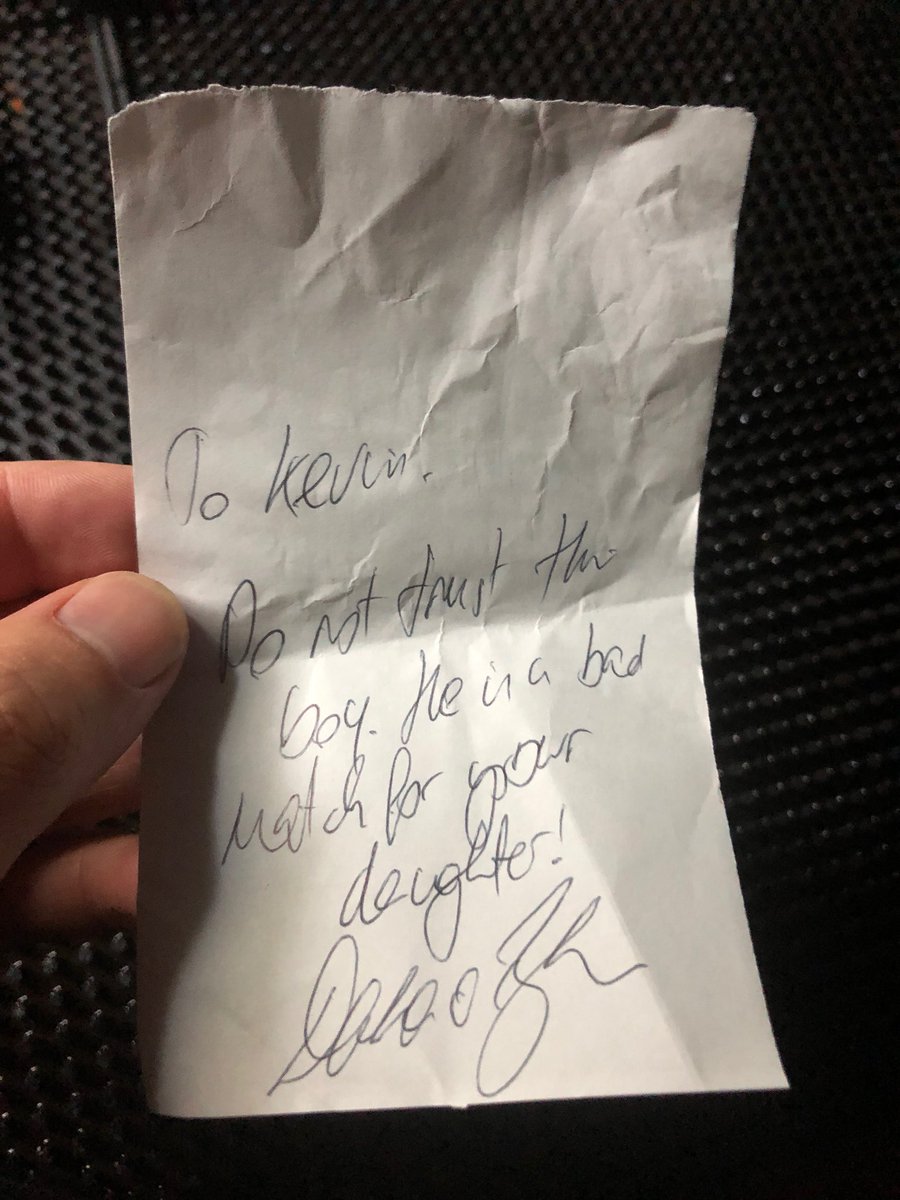 To Kevin.
Do not trust this
boy. He is a bad
match for your
daughter!